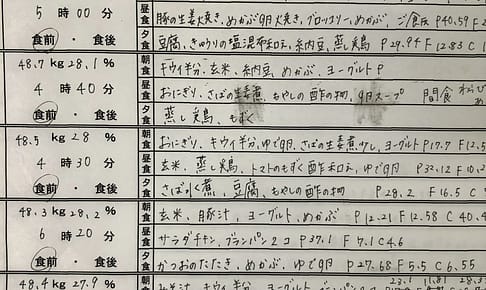 5 時 00 分 昼食 豚の生姜焼き、めかぶ、卵焼き、ブロッコリー、めかぶ、ご飯 P40.59 F2
食前 ・ 食後 夕食 豆腐、きゅうりの塩昆布和え、納豆、蒸し鶏 P29.94 F12.83 C1
48.7 kg 28.1 % 朝食 キウイ半分、玄米、納豆、めかぶ、ヨーグルト P
4 時 40 分 昼食 おにぎり、さばの生姜煮、もやしの酢の物、卵スープ 間食 わらび
食前 ・ 食後 夕食 蒸し鶏、もずく
48.5 kg 28 % 朝食 おにぎり、キウイ半分、ゆで卵、さばの生姜煮少し、ヨーグルト P17.7 F12.5
4 時 30 分 昼食 玄米、蒸し鶏、トマトのもずく酢和え、ゆで卵 P32.12 F10.2
食前 ・ 食後 夕食 さばいく煮、豆腐、もやしの酢の物 P28.2 F16.5 C
48.3 kg 28.2 % 朝食 玄米、豚汁、ヨーグルト、めかぶ P12.21 F12.58 C40.4
6 時 20 分 昼食 サラダチキン、ブランパン2コ P37.1 F7.1 C4.6
食前 ・ 食後 夕食 かつおのたたき、めかぶ、ゆで卵 P27.68 F5.5 C6.55
48.4 kg 27.9 % 朝 みそ汁、キウイ半分、ヨーグルト